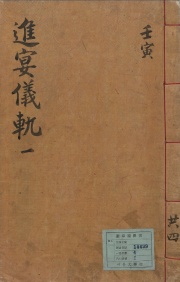 壬寅
進宴儀軌 一
共四